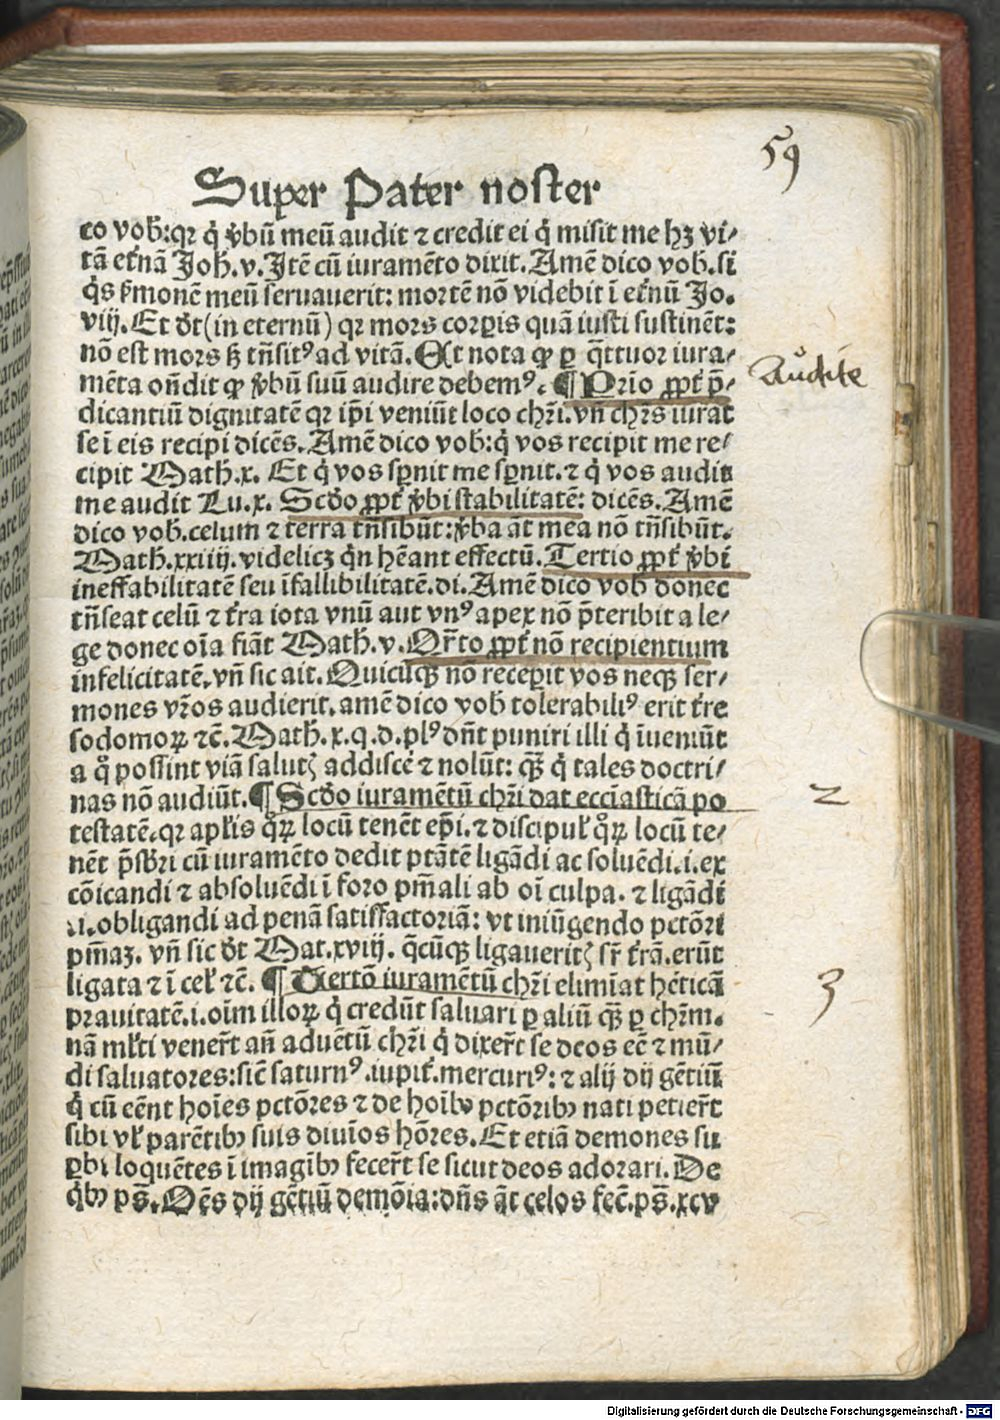 59
Super Pater noster
co vob̄:qꝛ q̇ v̓bū meū audit ⁊ credit ei q̇ misit me hꝫ vi⸗
tā et̓nā Joh̄.v.Jtē cū iuramēto dixit.Amē dico vob̄.si
q̇s s̓monē meū seruauerit: mortē nō videbit ī et̓nū Jo.
viij.Et dt̄(in eternū) qꝛ mors corꝑis quā iusti sustinēt:
nō est mors sꝫ trn̄sitꝰ ad vitā. Et nota ꝙ ꝑ q̄ttuor iura⸗
mēta on̄dit ꝙ v̓bū suū audire debemꝰ. ¶ Prīo ꝓpt̓ p̄⸗
Audite
dicantiū dignitatē qꝛ ip̄i veniūt loco chr̄i.vn̄ chr̄s iurat
se ī eis recipi dicēs.Amē dico vob̄:q̇ vos recipit me re⸗
cipit Math̄.x. Et q̇ vos sꝑnit me sꝑnit.⁊ q̇ vos audit
me audit Lu.x. Scd̄o ꝓpt̓ v̓bi stabilitatē: dicēs.Amē
dico vob̄.celum ⁊ terra trn̄sibūt:v̓ba āt mea nō trn̄sibūt.
Math̄.xxiiij.videlicꝫ q̇n hēant effectū.Tertio ꝓpt̓ v̓bi
ineffabilitatē seu īfallibilitatē.di.Amē dico vob̄ donec
trn̄seat celū ⁊ t̓ra iota vnū aut vnꝰ apex nō p̄teribit a le⸗
ge donec oīa fiāt Math̄.v.Qr̄to ꝓpt̓ nō recipientium
infelicitatē.vn̄ sic ait.Quicūqꝫ nō receperit vos neqꝫ ser⸗
mones vr̄os audierit.amē dico vob̄ tolerabiliꝰ erit t̓re
sodomoꝝ ⁊c̄.Math̄.x.q.d.plꝰ dn̄t puniri illi q̇ īueniūt
a q̊ possint viā salutꝭ addiscē ⁊ nolūt: qꝫ̄ q̇ tales doctri⸗
nas nō audiūt.¶ Scd̄o iuramētū chr̄i dat eccīasticā po
2
testatē.qꝛ apl̓is q̊ꝝ locū tenēt epī.⁊ discipul̓ q̊ꝝ locū te⸗
nēt p̄sbr̄i cū iuramēto dedit ptātē ligādi ac soluēdi.i.ex
cōicandi ⁊ absoluēdi ī foro pn̄iali ab oī culpa. ⁊ ligādi
.i.obligandi ad penā satisfactoriā: vt iniūgendo pctōri
pn̄iaꝫ. vn̄ sic dt̄ Mat.xviij. q̄cūqꝫ ligaueritꝭ sr̄ t̓rā.erūt
ligata ⁊ ī cel̓ ⁊c̄. ¶ Tertō iuramētū chr̄i elimīat hēticā
3
prauitatē.i.oīm illoꝝ q̇ credūt saluari ꝑ aliū qꝫ̄ ꝑ chr̄m.
nā ml̓ti vener̄t an̄ aduētū chr̄i q̇ dixer̄t se deos eē ⁊ mū⸗
di saluatores:sic̄ saturnꝰ.iupit̓.mercuriꝰ: ⁊ alij dij gētiū
q̇ cū eēnt hoīes pctōres ⁊ de hoībꝰ pctōribꝰ nati petier̄t
sibi vl̓ parētibꝰ suis diuīos hōres.Et etiā demones su
ꝑbi loquētes ī imagībꝰ fecer̄t se sicut deos adorari. De
q̇bꝰ ps̄.Oēs dij gētiū demōia:dn̄s āt celos fec̄.ps̄.xcv
Digitalisierung gefördert durch die Deutsche Forschungsgemeinschaft - DFG